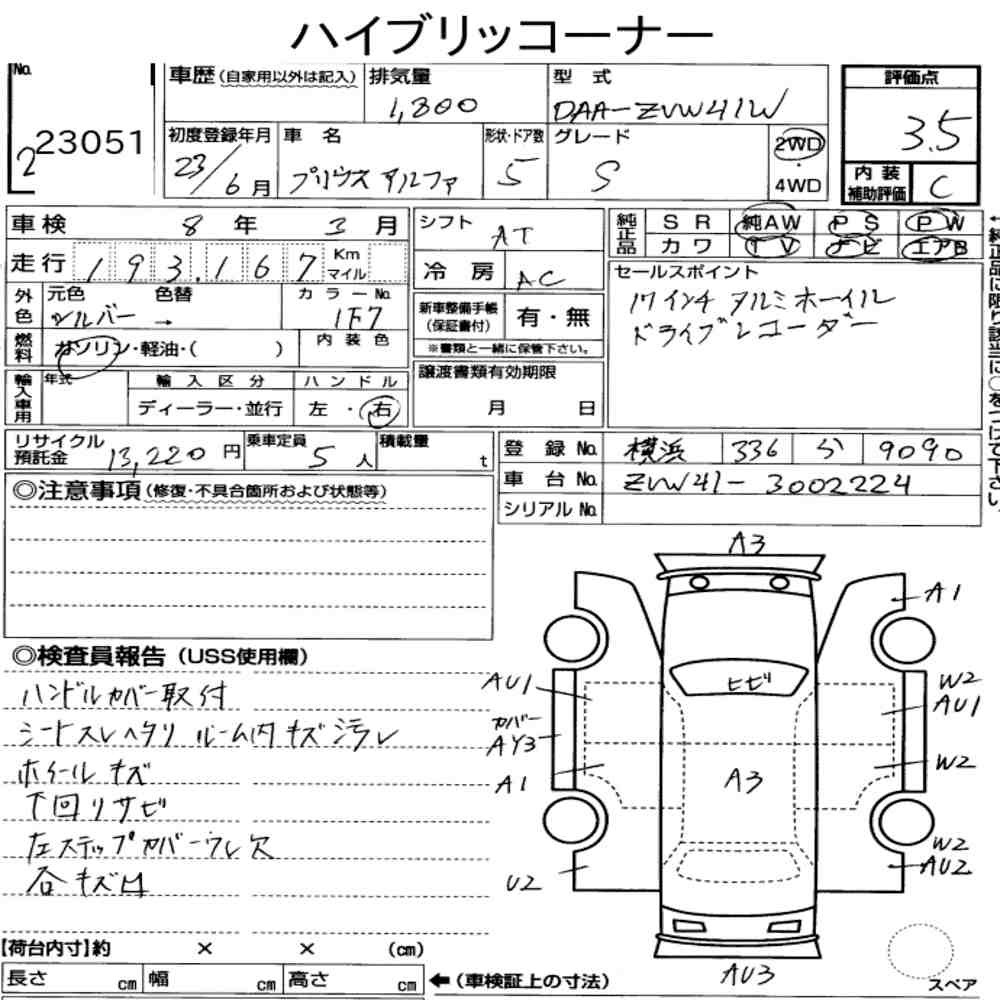 ハイブリッコーナー
No. 2 23051
車歴(自家用以外は記入) 排気量 1,800 型式 DAA-ZVW41W
評価点 3.5
初度登録年月 23/6月 車名 プリウスアルファ 形状・ドア数 5 グレード S 2WD・4WD
内装補助評価 C
車検 8年3月
走行 193.167 Km マイル
外色 元色 シルバー 色替 → カラーNo. 1F7
燃料 ガソリン・軽油・( ) 内装色
輸入車用 年式 輸入区分 ディーラー・並行 ハンドル 左・右
シフト AT
冷房 AC
新車整備手帳(保証書付) 有・無
※書類と一緒に保管下さい。
譲渡書類有効期限
月 日
純正品 SR 純AW PS PW
カワ TV ナビ エアB
セールスポイント
17インチアルミホイール
ドライブレコーダー
←純正品に限り該当に○をつけて下さい。
リサイクル預託金 13,220円 乗車定員 5人 積載量 t
登録No. 横浜 336 9090
車台No. ZVW41-3002224
シリアルNo.
◎注意事項(修復・不具合箇所および状態等)
◎検査員報告(USS使用欄)
ハンドルカバー取付
シートスレヘタリ ルーム内キズ汚レ
ホイールキズ
下回リサビ
左ステップカバーウレ欠
各キズ凹
A3
A1
AU1
ヒビ
W2
AU1
カバー
AY3
A1
A3
W2
W2
AU2
U2
AU3
スペア
【荷台内寸】約 × × (cm)
長さ cm 幅 cm 高さ cm ←(車検証上の寸法)